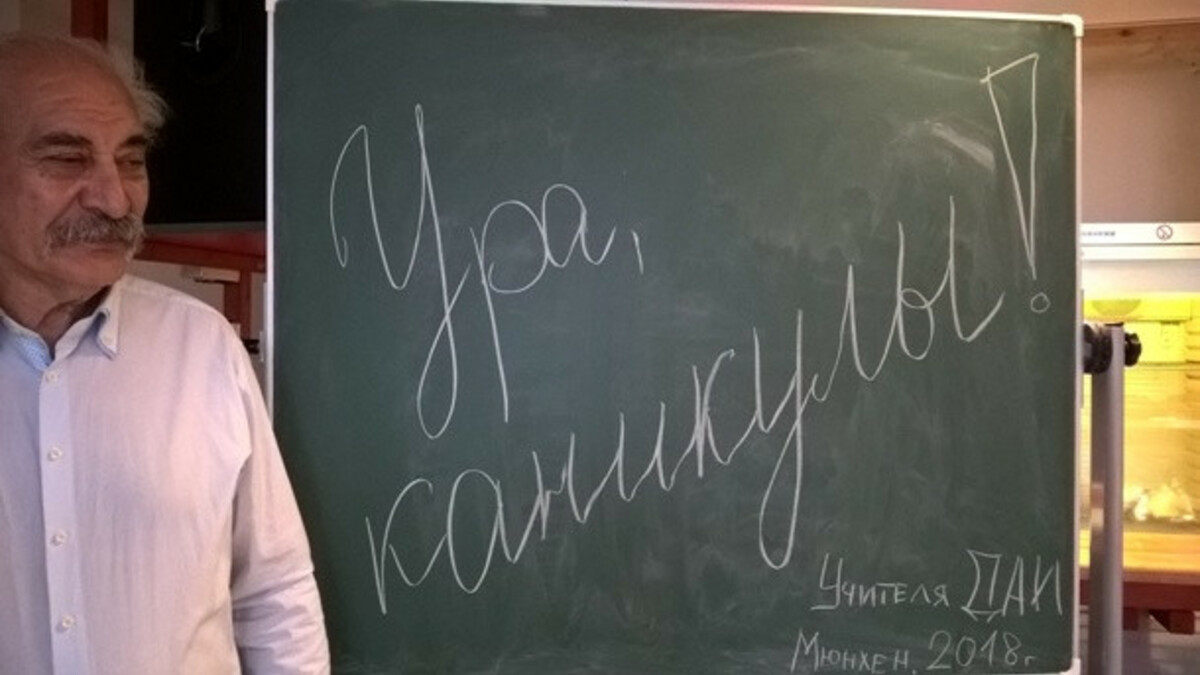 Ура,
каникулы!
Учителя ДАИ
Мюнхен, 2018г.